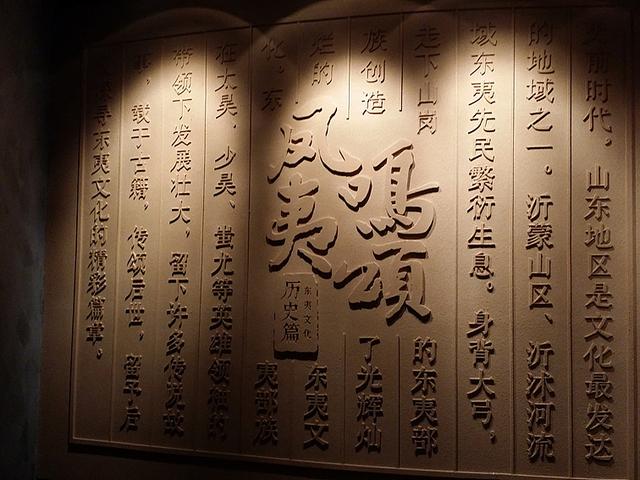 史前时代，山东地区是文化最发达
的地域之一。沂蒙山区、沂沭河流
域东夷先民繁衍生息。身背大弓、
走下山岗的东夷部
族创造了光辉灿
烂的东夷文
化。东夷部族
在太昊、少昊、蚩尤等英雄领袖的
带领下发展壮大，留下许多传说故
事，载于古籍，传颂后世，留予后
探寻东夷文化的精彩篇章。
凤鸣
夷頌
东夷文化
历史篇